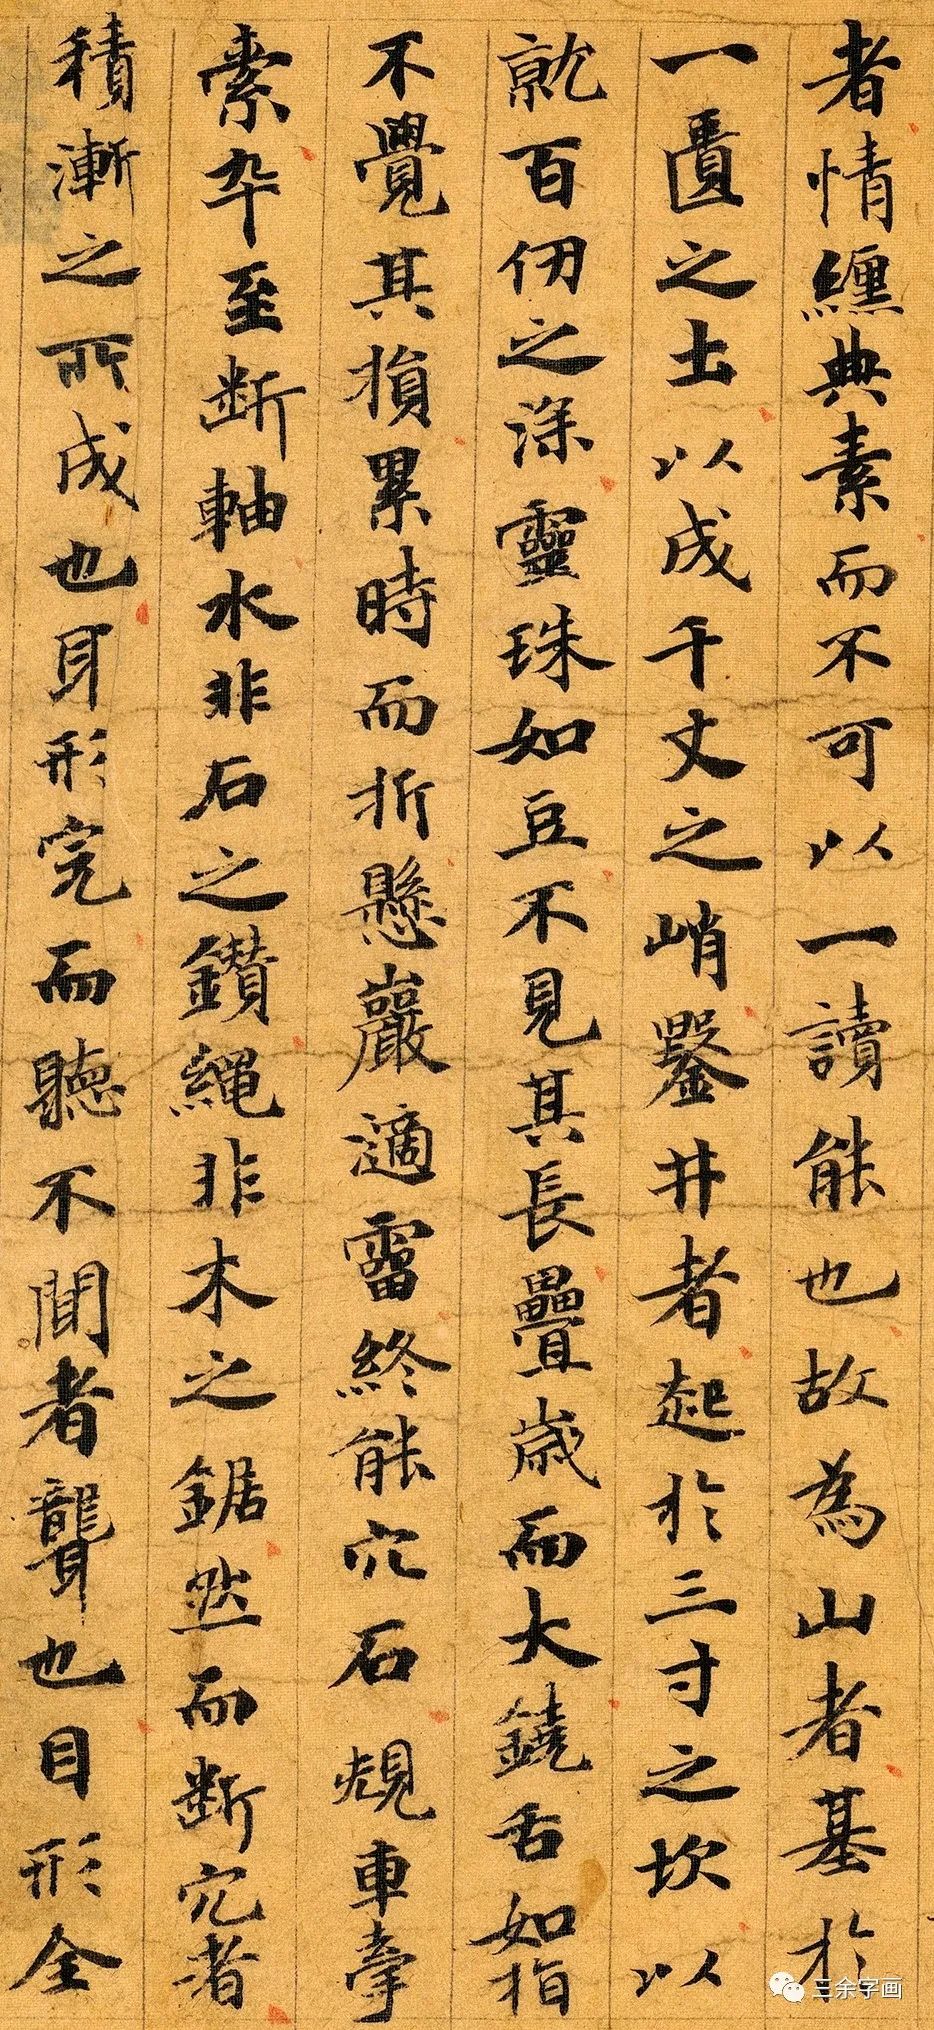 者情纏典素而不可以一讀能也故為山者基於
一匱之土以成千丈之峭鑿井者起於三寸之坎以
就百仞之深靈珠如豆不見其長疊歲而大鐃舌如指
不覺其損累時而折懸巖適霤終能穴石覢車牽
索卒至断軸水非石之鑽繩非木之鋸然而断穴者
積漸之所成也耳形完而聽不聞者聾也目形全
三余字画